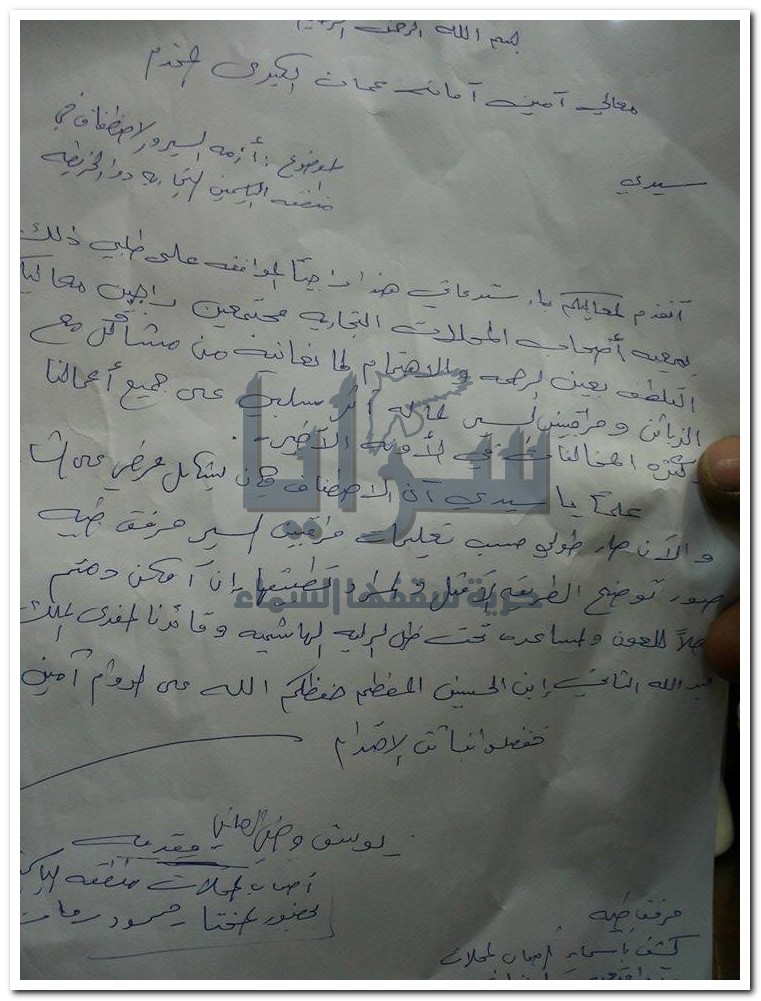 بسم الله الرحمن الرحيم
معالي أمين أمانة عمان الكبرى المحترم
الموضوع: أزمه السير والاصطفاف في
سيدي
منطقه الياسمين التجاريه دوار الخريطه
أتقدم لمعاليكم باستدعائي هذا راجياً الموافقه على طلبي ذلك
بمعيه أصحاب المحلات التجاريه مجتمعين راجين معاليكم
التلطف بعين الرحمه والاهتمام لما نعانيه من مشاكل مع
الزبائن ومراقبين السير لما له أثر سلبي على جميع أعمالنا
وكثره المخالفات في الأونه الأخيره.
علماً يا سيدي أن الاصطفاف كان بشكل عرضي على
والآن صار طولي حسب تعليمات مراقبين السير مرفق طيه
صور توضح الطريقه الأمثل إن أمكن دمتم
للعون والمساعده تحت ظل الرايه الهاشميه وقائدنا المفدى الملك
عبد الله الثاني إبن الحسين المعظم حفظكم الله على الدوام آمين
تفضلوا فائق الإحترام
مقدمه
أصحاب المحلات منطقه
بحضور المختار
مرفق طيه
كشف بأسماء أصحاب المحلات
سرايا
حرية سقفها السماء